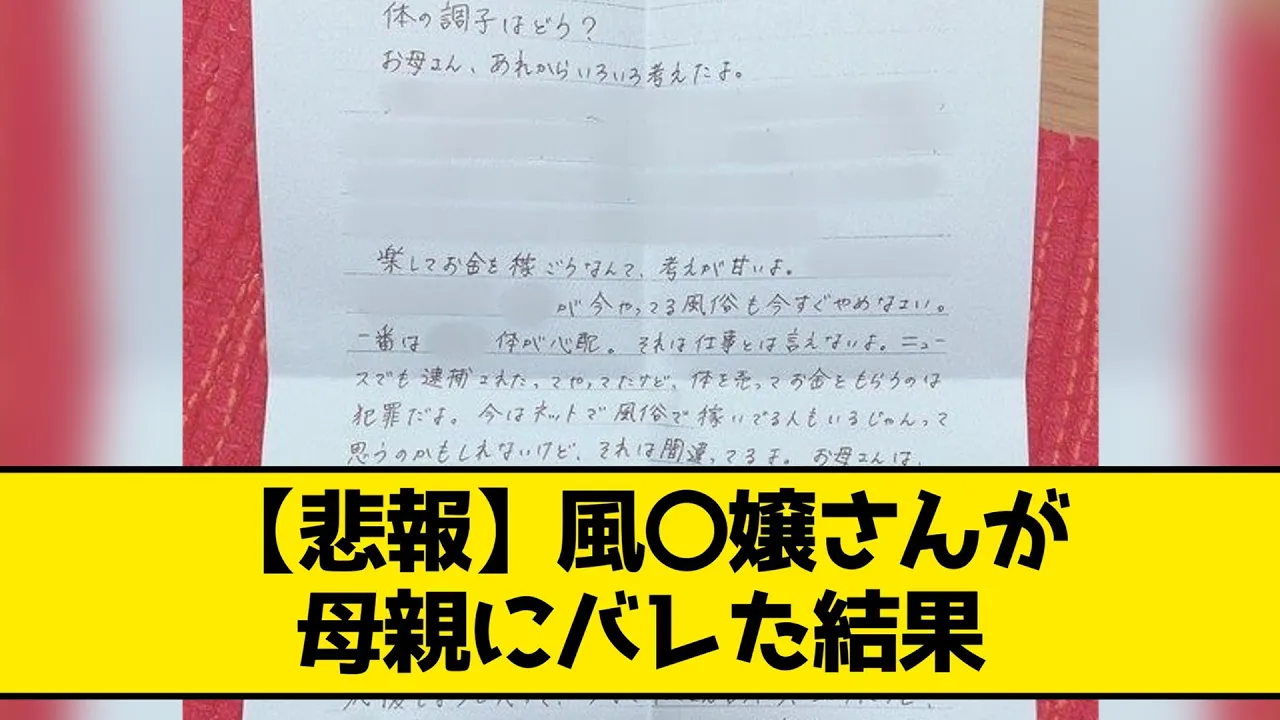 体の調子はどう?
お母さん、あれからいろいろ考えたよ。
楽してお金を稼ごうなんて、考えが甘いよ。
が今やってる風俗も今すぐやめなさい。
一番は 体が心配。それは仕事とは言えないよ。ニュー
スでも逮捕されたってやってたけど、体を売ってお金をもらうのは
犯罪だよ。今はネットで風俗で稼いでる人もいるじゃんって
思うのかもしれないけど、それは間違ってるよ。お母さんは、
【悲報】風〇嬢さんが
母親にバレた結果